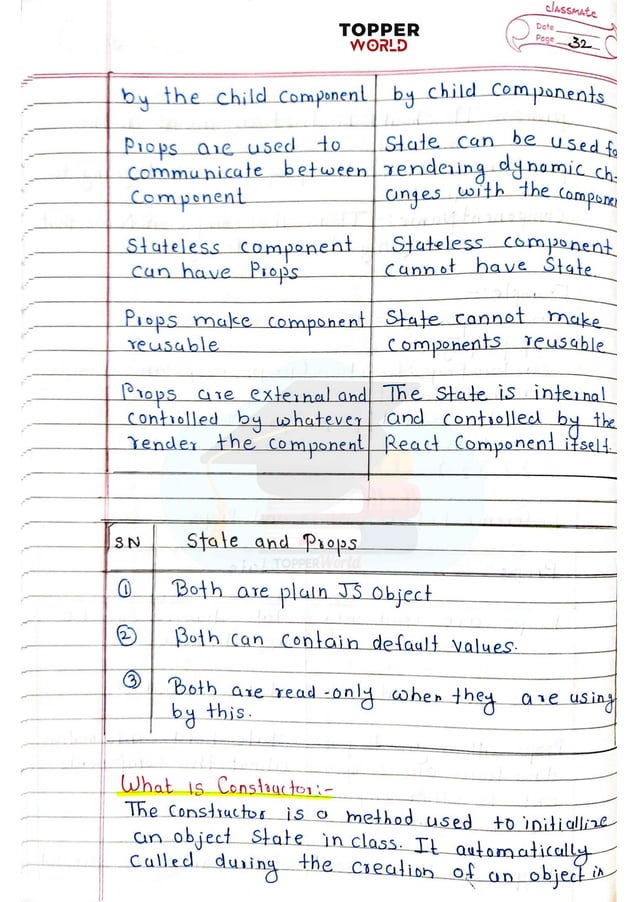 classmate
TOPPER
WORLD
Date
Page 32
by the child component
Props are used to
communicate between
component
Stateless component
can have Props
Props make component
reusable
Props are external and
controlled by whatever
render the component
by child components
State can be used fo
rendering dynamic ch-
anges with the componen
Stateless component
cannot have State
State cannot make
components reusable
The State is internal
and controlled by the
React Component itself.
SN State and Props
TOPPERWorld
① Both are plain JS Object
② Both can contain default values.
③ Both are read-only when they are using
by this.
What is Constructor:-
The constructor is a method used to initiallize
an object State in class. It automatically
called during the creation of an object in